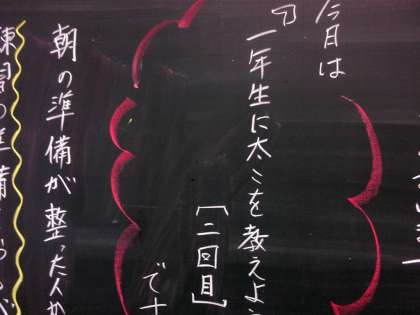 今日は
『一年生に太こを教えよう
[二回目]
です
朝の準備が整った人から
練習の準備